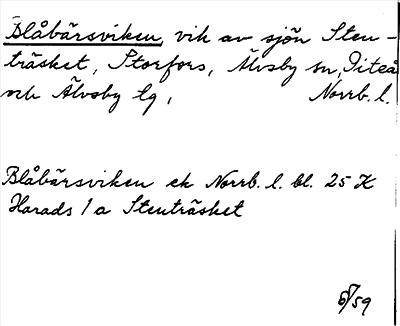 Blåbärsviken, vik av sjön Sten-
träsket, Storfors, Älvsby sn, Piteå
och Älvsby tg, Norrb. l.
Blåbärsviken ek Norrb. l. bl. 25 K
Harads 1 a Stenträsket
/59